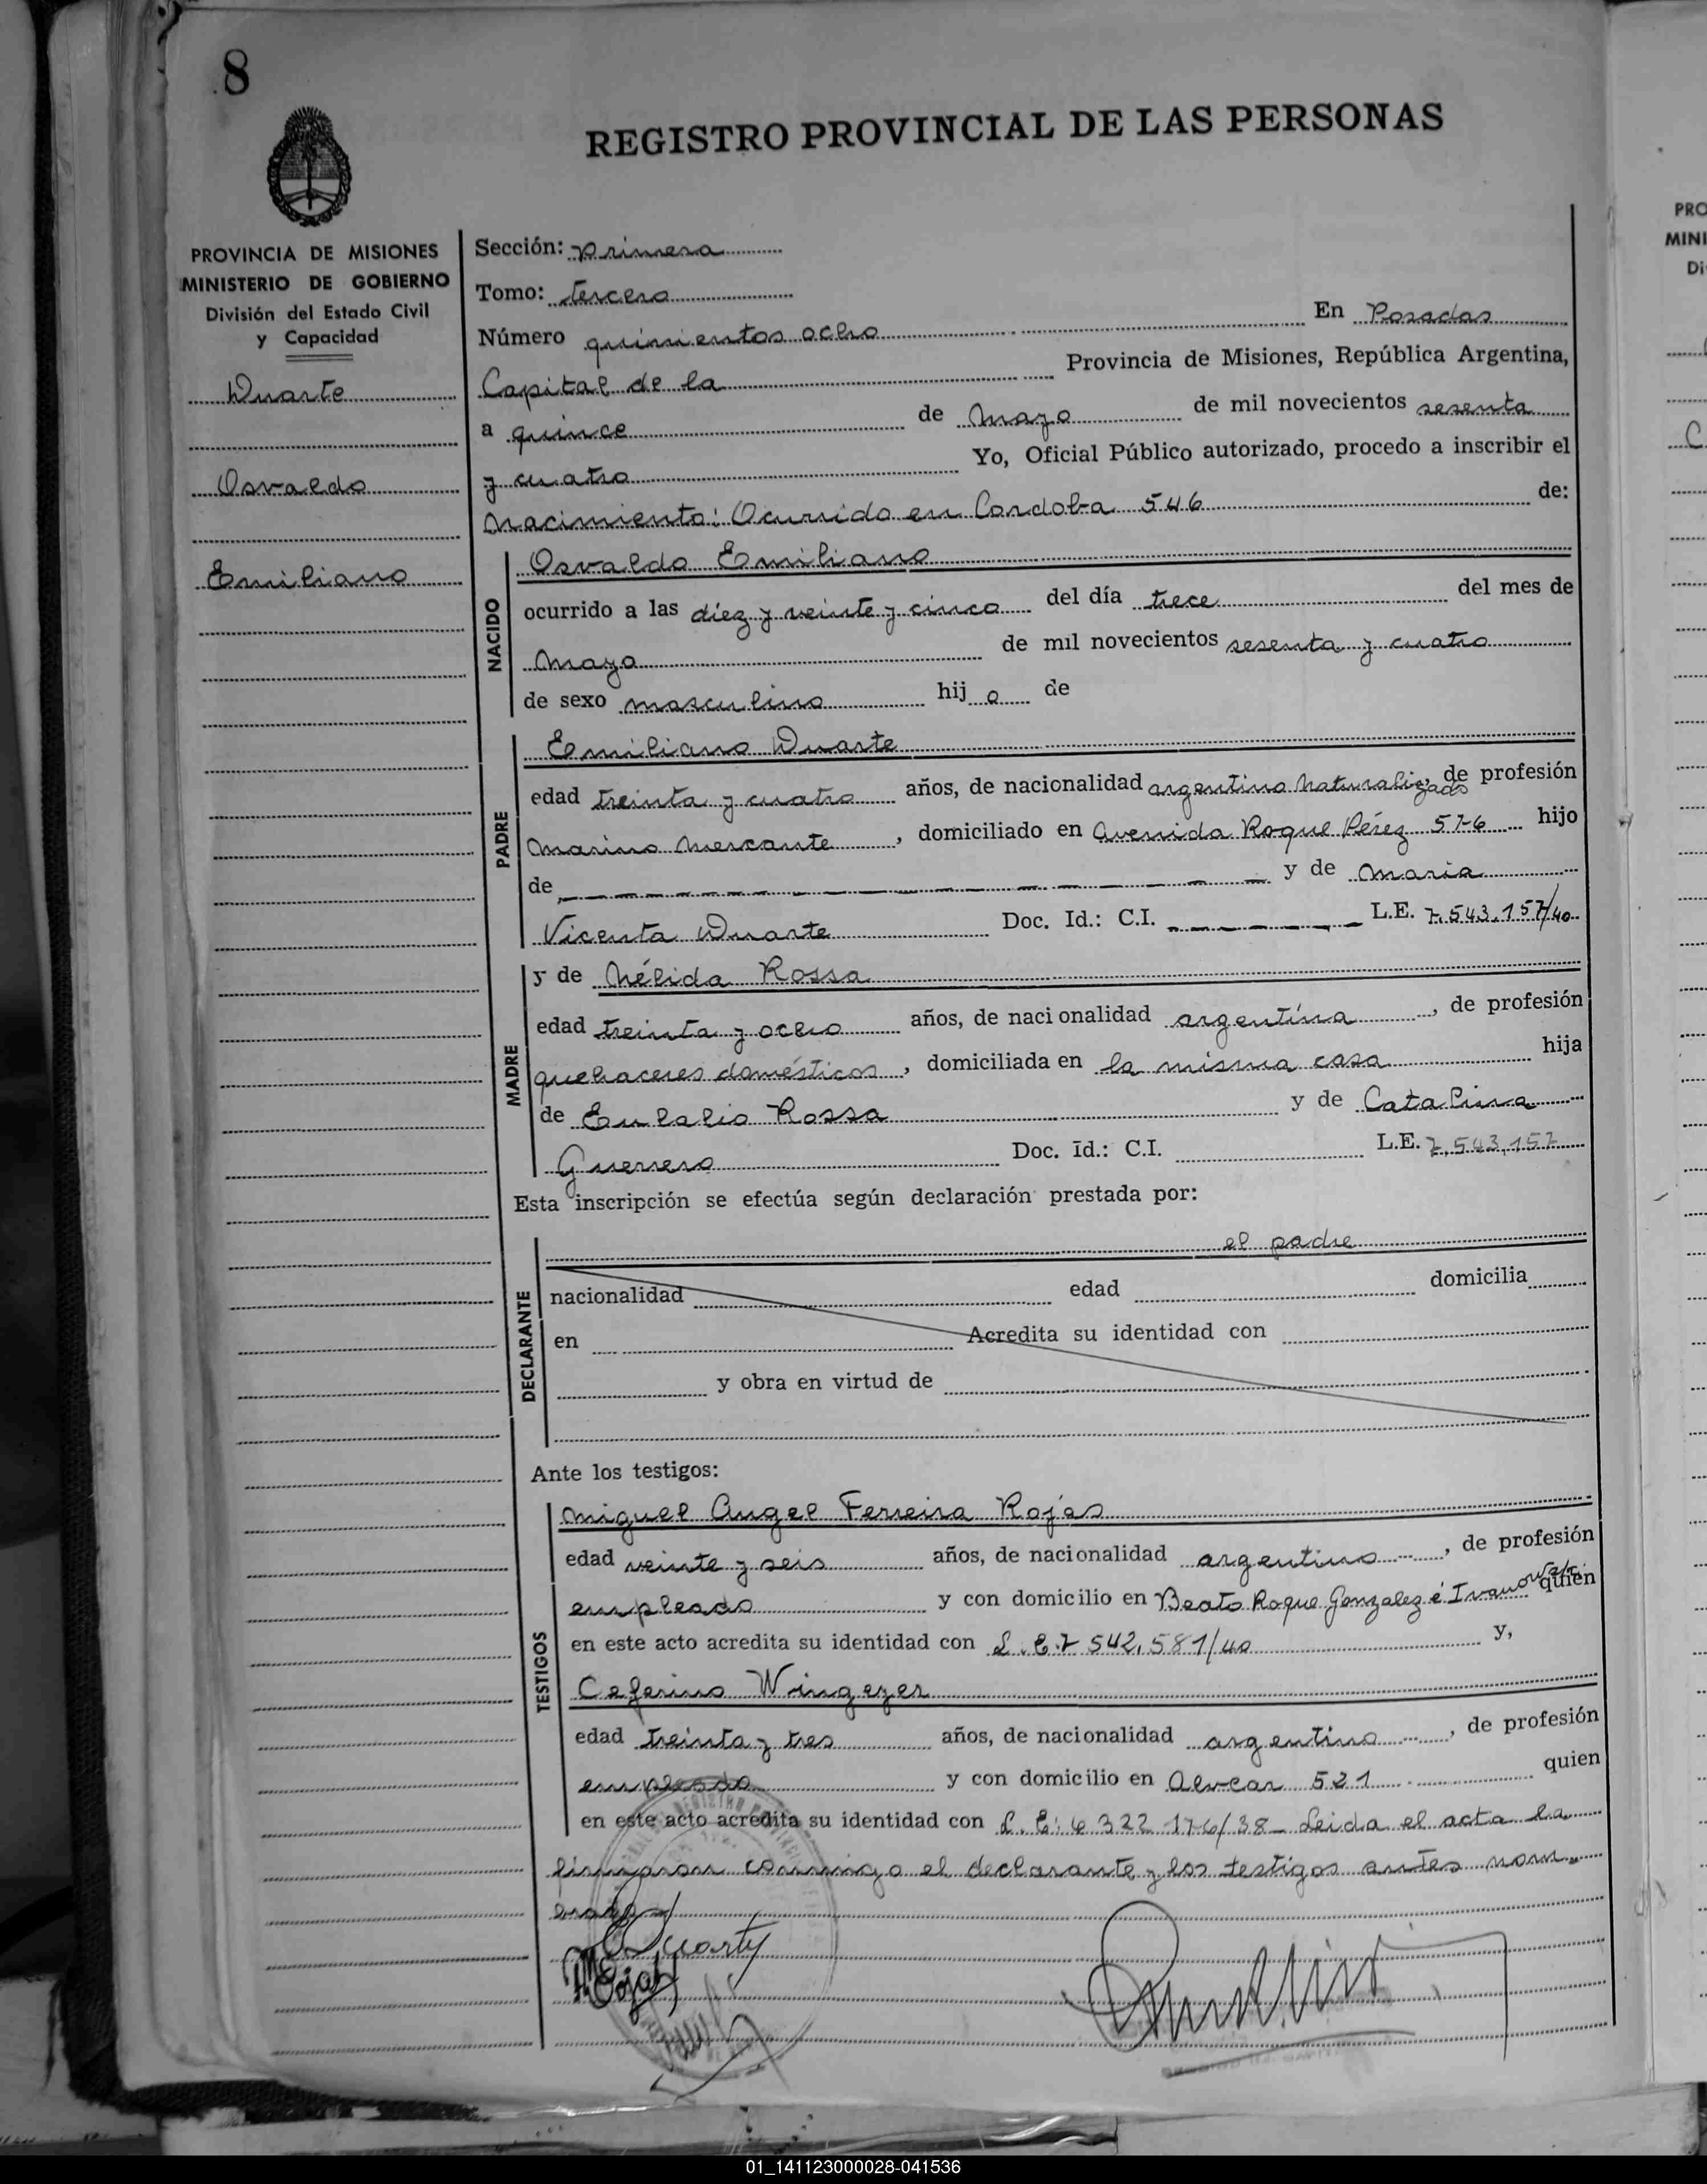 8
REGISTRO PROVINCIAL DE LAS PERSONAS
PROVINCIA DE MISIONES
MINISTERIO DE GOBIERNO
División del Estado Civil
y Capacidad
Duarte
Osvaldo
Emiliano
Sección: primera
Tomo: tercero
Número quinientos ocho En Posadas
Capital de la Provincia de Misiones, República Argentina,
a quince de Mayo de mil novecientos sesenta
y cuatro Yo, Oficial Público autorizado, procedo a inscribir el
nacimiento: Ocurrido en Cordoba 546 de:
NACIDO
Osvaldo Emiliano
ocurrido a las diez y veinte y cinco del día trece del mes de
Mayo de mil novecientos sesenta y cuatro
de sexo masculino hijo de
PADRE
Emiliano Duarte
edad treinta y cuatro años, de nacionalidad argentino naturalizado, de profesión
marino mercante, domiciliado en Avenida Roque Pérez 576 hijo
de y de Maria
Vicenta Duarte Doc. Id.: C.I. L.E. 7.543.157/40
MADRE
y de Nélida Rossa
edad treinta y ocho años, de nacionalidad argentína, de profesión
quehaceres domésticos, domiciliada en la misma casa hija
de Eulalio Rossa y de Catalina
Guerrero Doc. Id.: C.I. L.E. 7.543.157
Esta inscripción se efectúa según declaración prestada por:
DECLARANTE
el padre
nacionalidad edad domicilia
en Acredita su identidad con
y obra en virtud de
Ante los testigos:
TESTIGOS
Miguel Angel Ferreira Rojas
edad veinte y seis años, de nacionalidad argentino, de profesión
empleado y con domicilio en Beato Roque Gonzalez é Ivanowski quien
en este acto acredita su identidad con L.E. 7 542.581/40 y,
Ceferino Wingeyer
edad treinta y tres años, de nacionalidad argentino, de profesión
empleado y con domicilio en Alvear 521 quien
en este acto acredita su identidad con L.E: 6 322 176/38 Leida el acta la
firmaron conmigo el declarante y los testigos antes nom-
brados
Duarte
Rojas
PRO
MINI
Di
C
01_141123000028-041536